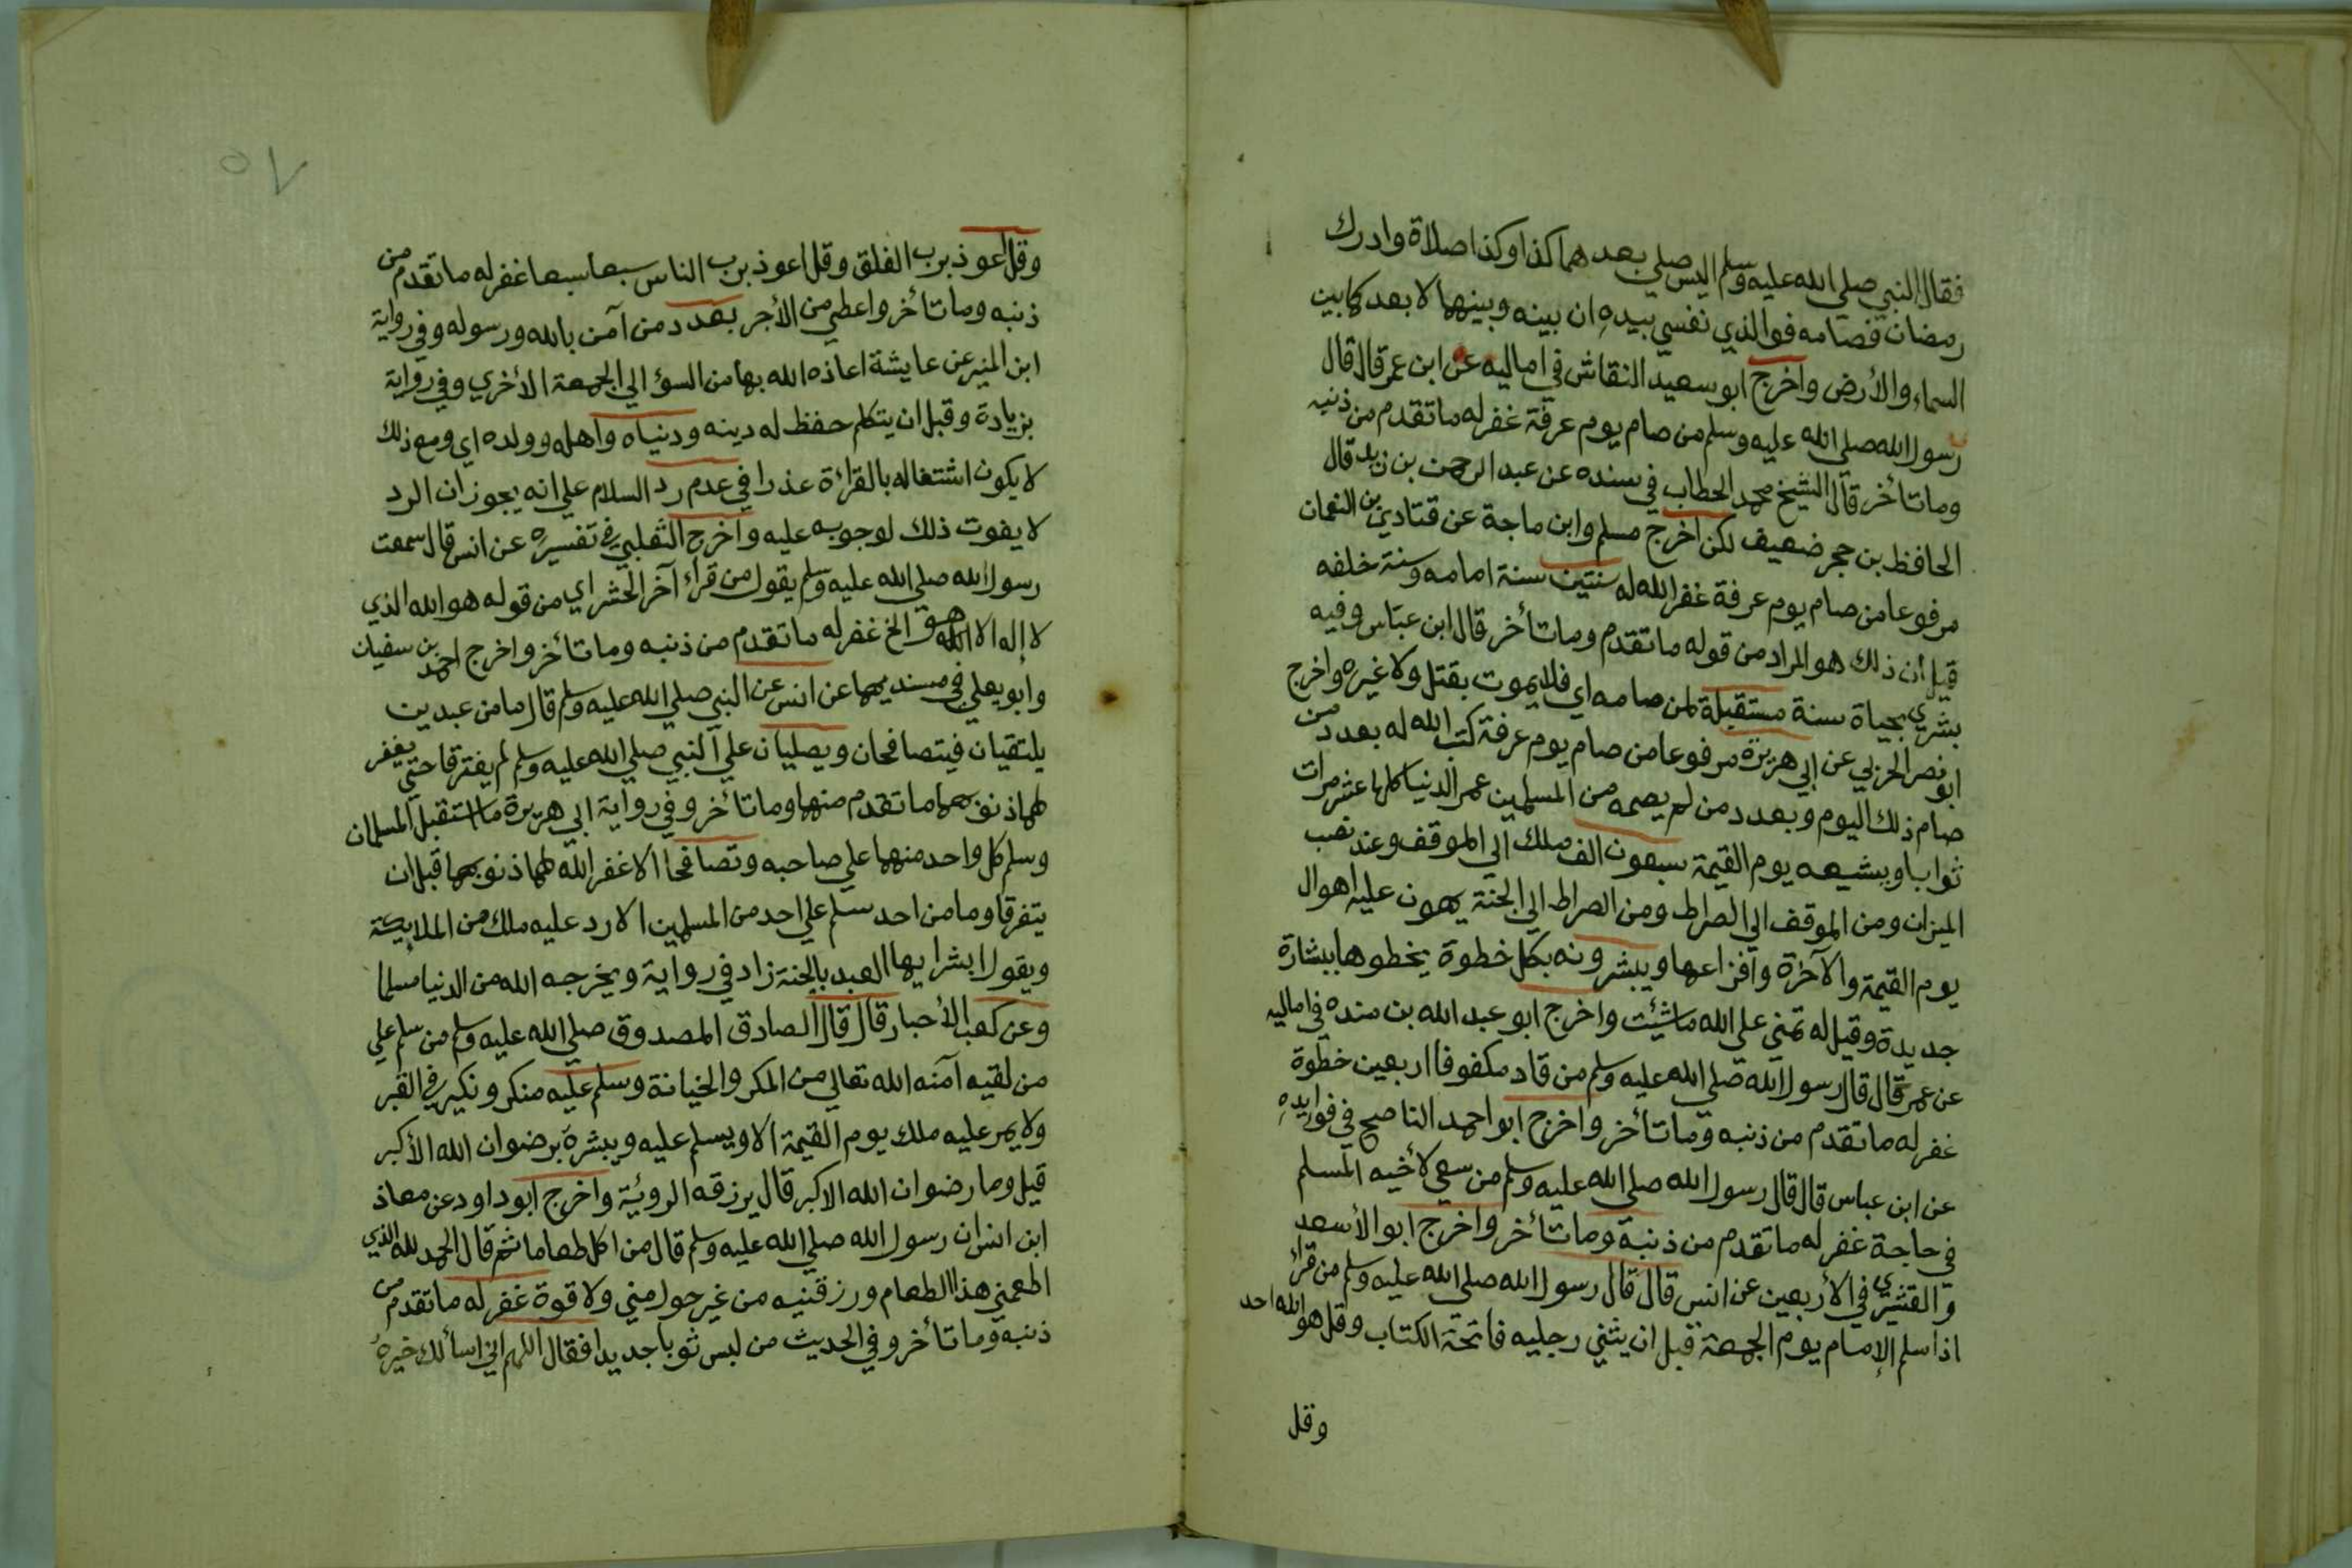 فقال النبي صلي الله عليه وسلم اليس صلي بعدهما كذا وكذا صلاة وادرك
رمضان فصامه فوالذي نفسي بيدهِ ان بينه وبينهما لابعد كما بين
السماء والأرض واخرج ابو سعيد النقاش في اماليه عن ابن عمر قال قال
رسول الله صلي الله عليه وسلم من صام يوم عرفة غفر له ما تقدم من ذنبه
وما تأخر قال الشيخ محمد الحطاب في سنده عن عبد الرحمن بن زيد قال
الحافظ بن حجر ضعيف لكن اخرج مسلم وابن ماجة عن قتادة بن النعمان
مرفوعا من صام يوم عرفة غفر الله له سنتين سنة امامه وسنة خلفه
قيل ان ذلك هو المراد من قوله ما تقدم وما تأخر قال ابن عبّاس وفيه
بشري بحياة سنة مستقبلة لمن صامه اي فلا يموت بقتل ولا غيره واخرج
ابو نصر الحربي عن ابي هريرة مرفوعا من صام يوم عرفة كتب الله له بعدد من
صام ذلك اليوم وبعدد من لم يصمه من المسلمين عمر الدنيا كلها عشر مرات
ثوابا ويشيعه يوم القيمة سبعون الف ملك الي الموقف وعند نصب
الميزان ومن الموقف الي الصراط ومن الصراط الي الجنة يهون عليه اهوال
يوم القيمة والآخرة وافزاعها ويبشرونه بكل خطوة يخطوها ببشارة
جديدة وقيل له تمني علي الله ما شئت واخرج ابو عبد الله بن منده في اماليه
عن عمر قال قال رسول الله صلي الله عليه وسلم من قاد مكفوفا اربعين خطوة
غفر له ما تقدم من ذنبه وما تأخر واخرج ابو احمد الناصح في فوايدهِ
عن ابن عباس قال قال رسول الله صلي الله عليه وسلم من سعي لأخيه المسلم
في حاجة غفر له ما تقدم من ذنبه وما تأخر واخرج ابو الأسعد
والقشيري في الأربعين عن انس قال قال رسول الله صلي الله عليه وسلم من قرأ
اذا سلم الإمام يوم الجمعة قبل ان يثني رجليه فاتحة الكتاب وقل هو الله احد
وقل
٥٧
وقل اعوذ برب الفلق وقل اعوذ برب الناس سبعا سبعا غفر له ما تقدم من
ذنبه وما تأخر واعطي من الأجر بعدد من آمن بالله ورسوله وفي رواية
ابن المنير عن عايشة اعاذه الله بها من السوٴ الي الجمعة الأخري وفي رواية
بزيادة وقبل ان يتكلم حفظ له دينه ودنياه واهله وولده اي ومع ذلك
لا يكون اشتغاله بالقراءة عذرا في عدم رد السلام علي انه يجوز ان الرد
لا يفوت ذلك لوجوبه عليه واخرج الثعلبي في تفسيره عن انس قال سمعت
رسول الله صلي الله عليه وسلم يقول من قرأ آخر الحشر اي من قوله هو الله الذي
لا إله الا هو الخ غفر له ما تقدم من ذنبه وما تأخر واخرج احمد بن سفيان
وابو يعلي في مسنديهما عن انس عن النبي صلي الله عليه وسلم قال ما من عبدين
يلتقيان فيتصافحان ويصليان علي النبي صلي الله عليه وسلم لم يفترقا حتي يغفر
لهما ذنوبهما ما تقدم منها وما تأخر وفي رواية ابي هريرة ما استقبل المسلمان
وسلم كل واحد منهما علي صاحبه وتصافحا الا غفر الله لهما ذنوبهما قبل ان
يتفرقا وما من احد سلم علي احد من المسلمين الا رد عليه ملك من الملايكة
ويقول ابشر ايها العبد بالجنة زاد في رواية ويخرجه الله من الدنيا مسلما
وعن كعب الأحبار قال قال الصادق المصدوق صلي الله عليه وسلم من سلم علي
من لقيه آمنه الله تعالي من المكر والخيانة وسلم عليه منكر ونكير في القبر
ولا يمر عليه ملك يوم القيمة الا ويسلم عليه ويبشره برضوان الله الأكبر
قيل وما رضوان الله الاكبر قال يرزقه الروئية واخرج ابو داود عن معاذ
ابن انس ان رسول الله صلي الله عليه وسلم قال من اكل طعاما ثم قال الحمد لله الذي
اطعمني هذا الطعام ورزقنيه من غير حول مني ولا قوة غفر له ما تقدم من
ذنبه وما تأخر وفي الحديث من لبس ثوبا جديدا فقال اللهم اني اسألك خيرهُ